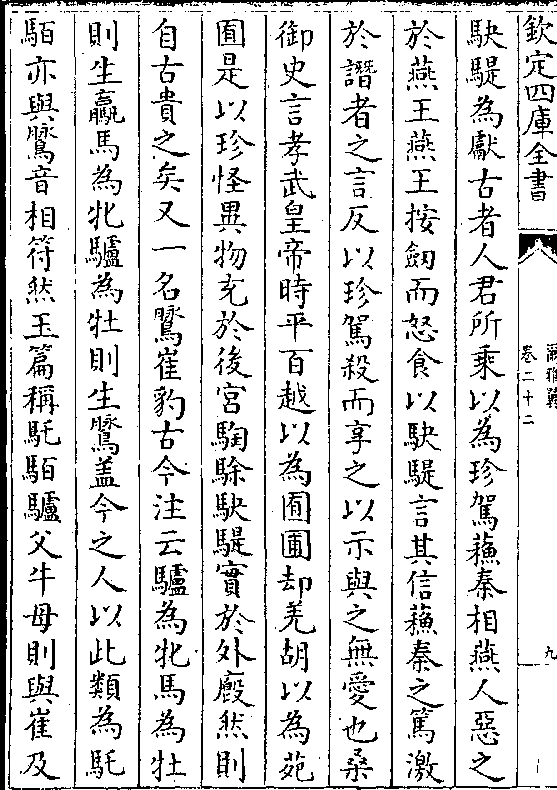 欽定四庫全書
爾雅翼
卷二十二
九
駃騠為獻古者人君所乗以為珍駕蘓秦相燕人惡之
於燕王燕王按劒而怒食以駃騠言其信蘓秦之篤激
於譖者之言反以珍駕殺而享之以示與之無愛也桑
御史言孝武皇帝時平百越以為囿圃却羌胡以為苑
囿是以珍怪異物充於後宫騊駼駃騠實於外廏然則
自古貴之矣又一名驡崔豹古今注云驢為牝馬為牡
則生驘馬為牝驢為牡則生驡盖今之人以此類為馲
駋亦與驡音相符然玉篇稱馲駋驢父牛母則與崔及